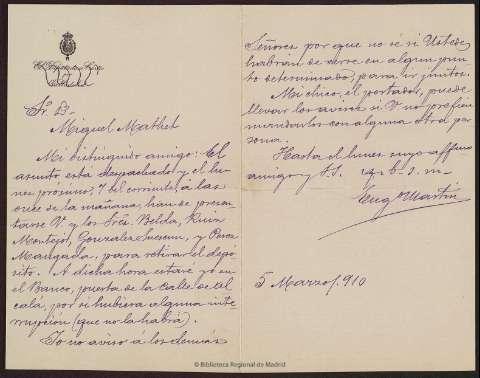 Sr. D.
Miguel Mathet
Mi distinguido amigo: El
asunto está despachado y el lu-
nes próximo, 7 del corriente, á las
once de la mañana, han de presen-
tarse V. y los Sres. Belda, Ruiz
Montejo, Gonzalez y Perez
Mangada, para retirar el depó-
sito. A dicha hora estaré yo en
el Banco, puerta de la Calle de Al-
calá, por si hubiera alguna inte-
rrupción (que no la habrá).
Yo no aviso á los demás
Señores por que no sé si Ustedes
habran de verse en algun pun-
to determinado, para ir juntos.
Mi chico, el portador, puede
llevar los avisos si V. no prefiere
mandarlos con alguna otra per-
sona.
Hasta el lunes suyo affmo
amigo y S.S. q. b. s. m.
Eug.º Martin
5 Marzo/910
© Biblioteca Regional de Madrid